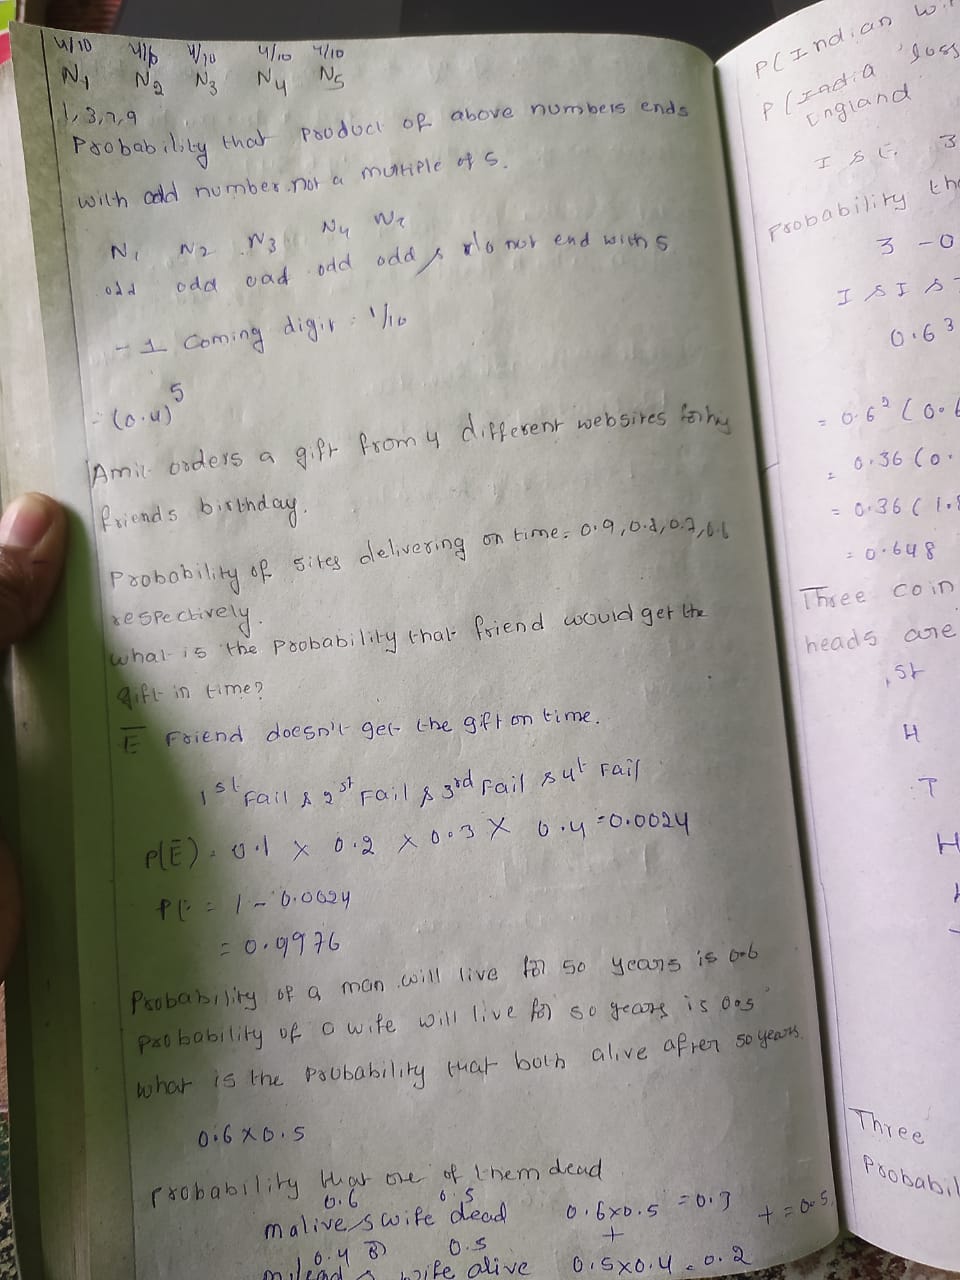 4/10 4/10 4/10 4/10 4/10
N1 N2 N3 N4 N5
1,3,7,9
Probability that product of above numbers ends
with odd number not a multiple of 5.
N1 N2 N3 N4
odd odd odd odd odd & do not end with 5
- 1 coming digit = 1/10
= (0.4)^5
Amit orders a gift from 4 different websites for his
friends birthday.
Probability of sites delivering on time = 0.9, 0.8, 0.7, 0.6
respectively.
What is the probability that friend would get the
gift in time?
E̅ Friend doesn't get the gift on time.
1st Fail & 2st Fail & 3rd Fail & 4t Fail
P(E̅) = 0.1 × 0.2 × 0.3 × 0.4 = 0.0024
PE = 1 - 0.0024
= 0.9976
Probability of a man will live for 50 years is 0.6
Probability of a wife will live for 50 years is 0.5
What is the probability that both alive after 50 years.
0.6 × 0.5
Probability that one of them dead
0.6 0.5
m alive & wife dead 0.6×0.5 = 0.3 + = 0.5
0.4 & 0.5 +
wife alive 0.5×0.4 = 0.2
P(Indian
P(India loss
England
I & E 3
Probability
3 - 0
I & I &
0.6^3
= 0.6^2 (0.6
= 0.36 (0.
= 0.36 (1.8
= 0.648
Three coin
heads are
1st
H
T
H
Three
Probabil